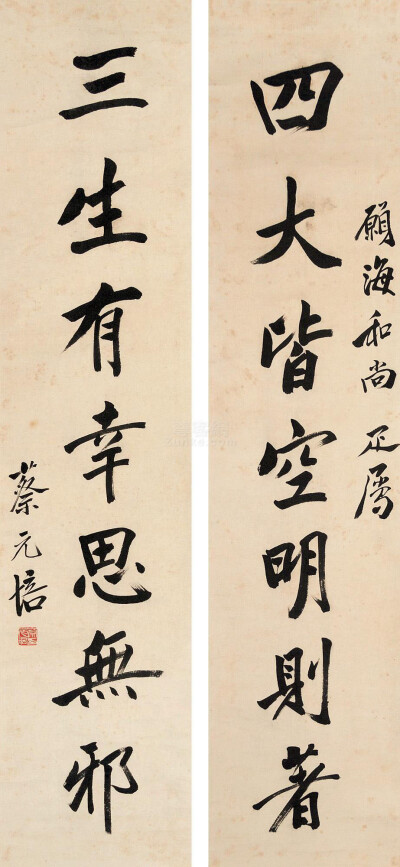 願海和尚 正屬
四大皆空明則著
三生有幸思無邪
蔡元培